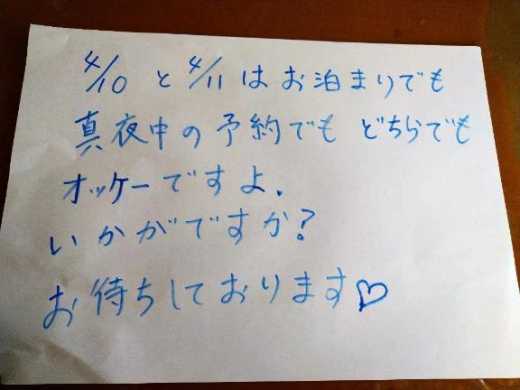 4/10 と 4/11 はお泊まりでも
真夜中の予約でも どちらでも
オッケーですよ.
いかがですか?
お待ちしております♡